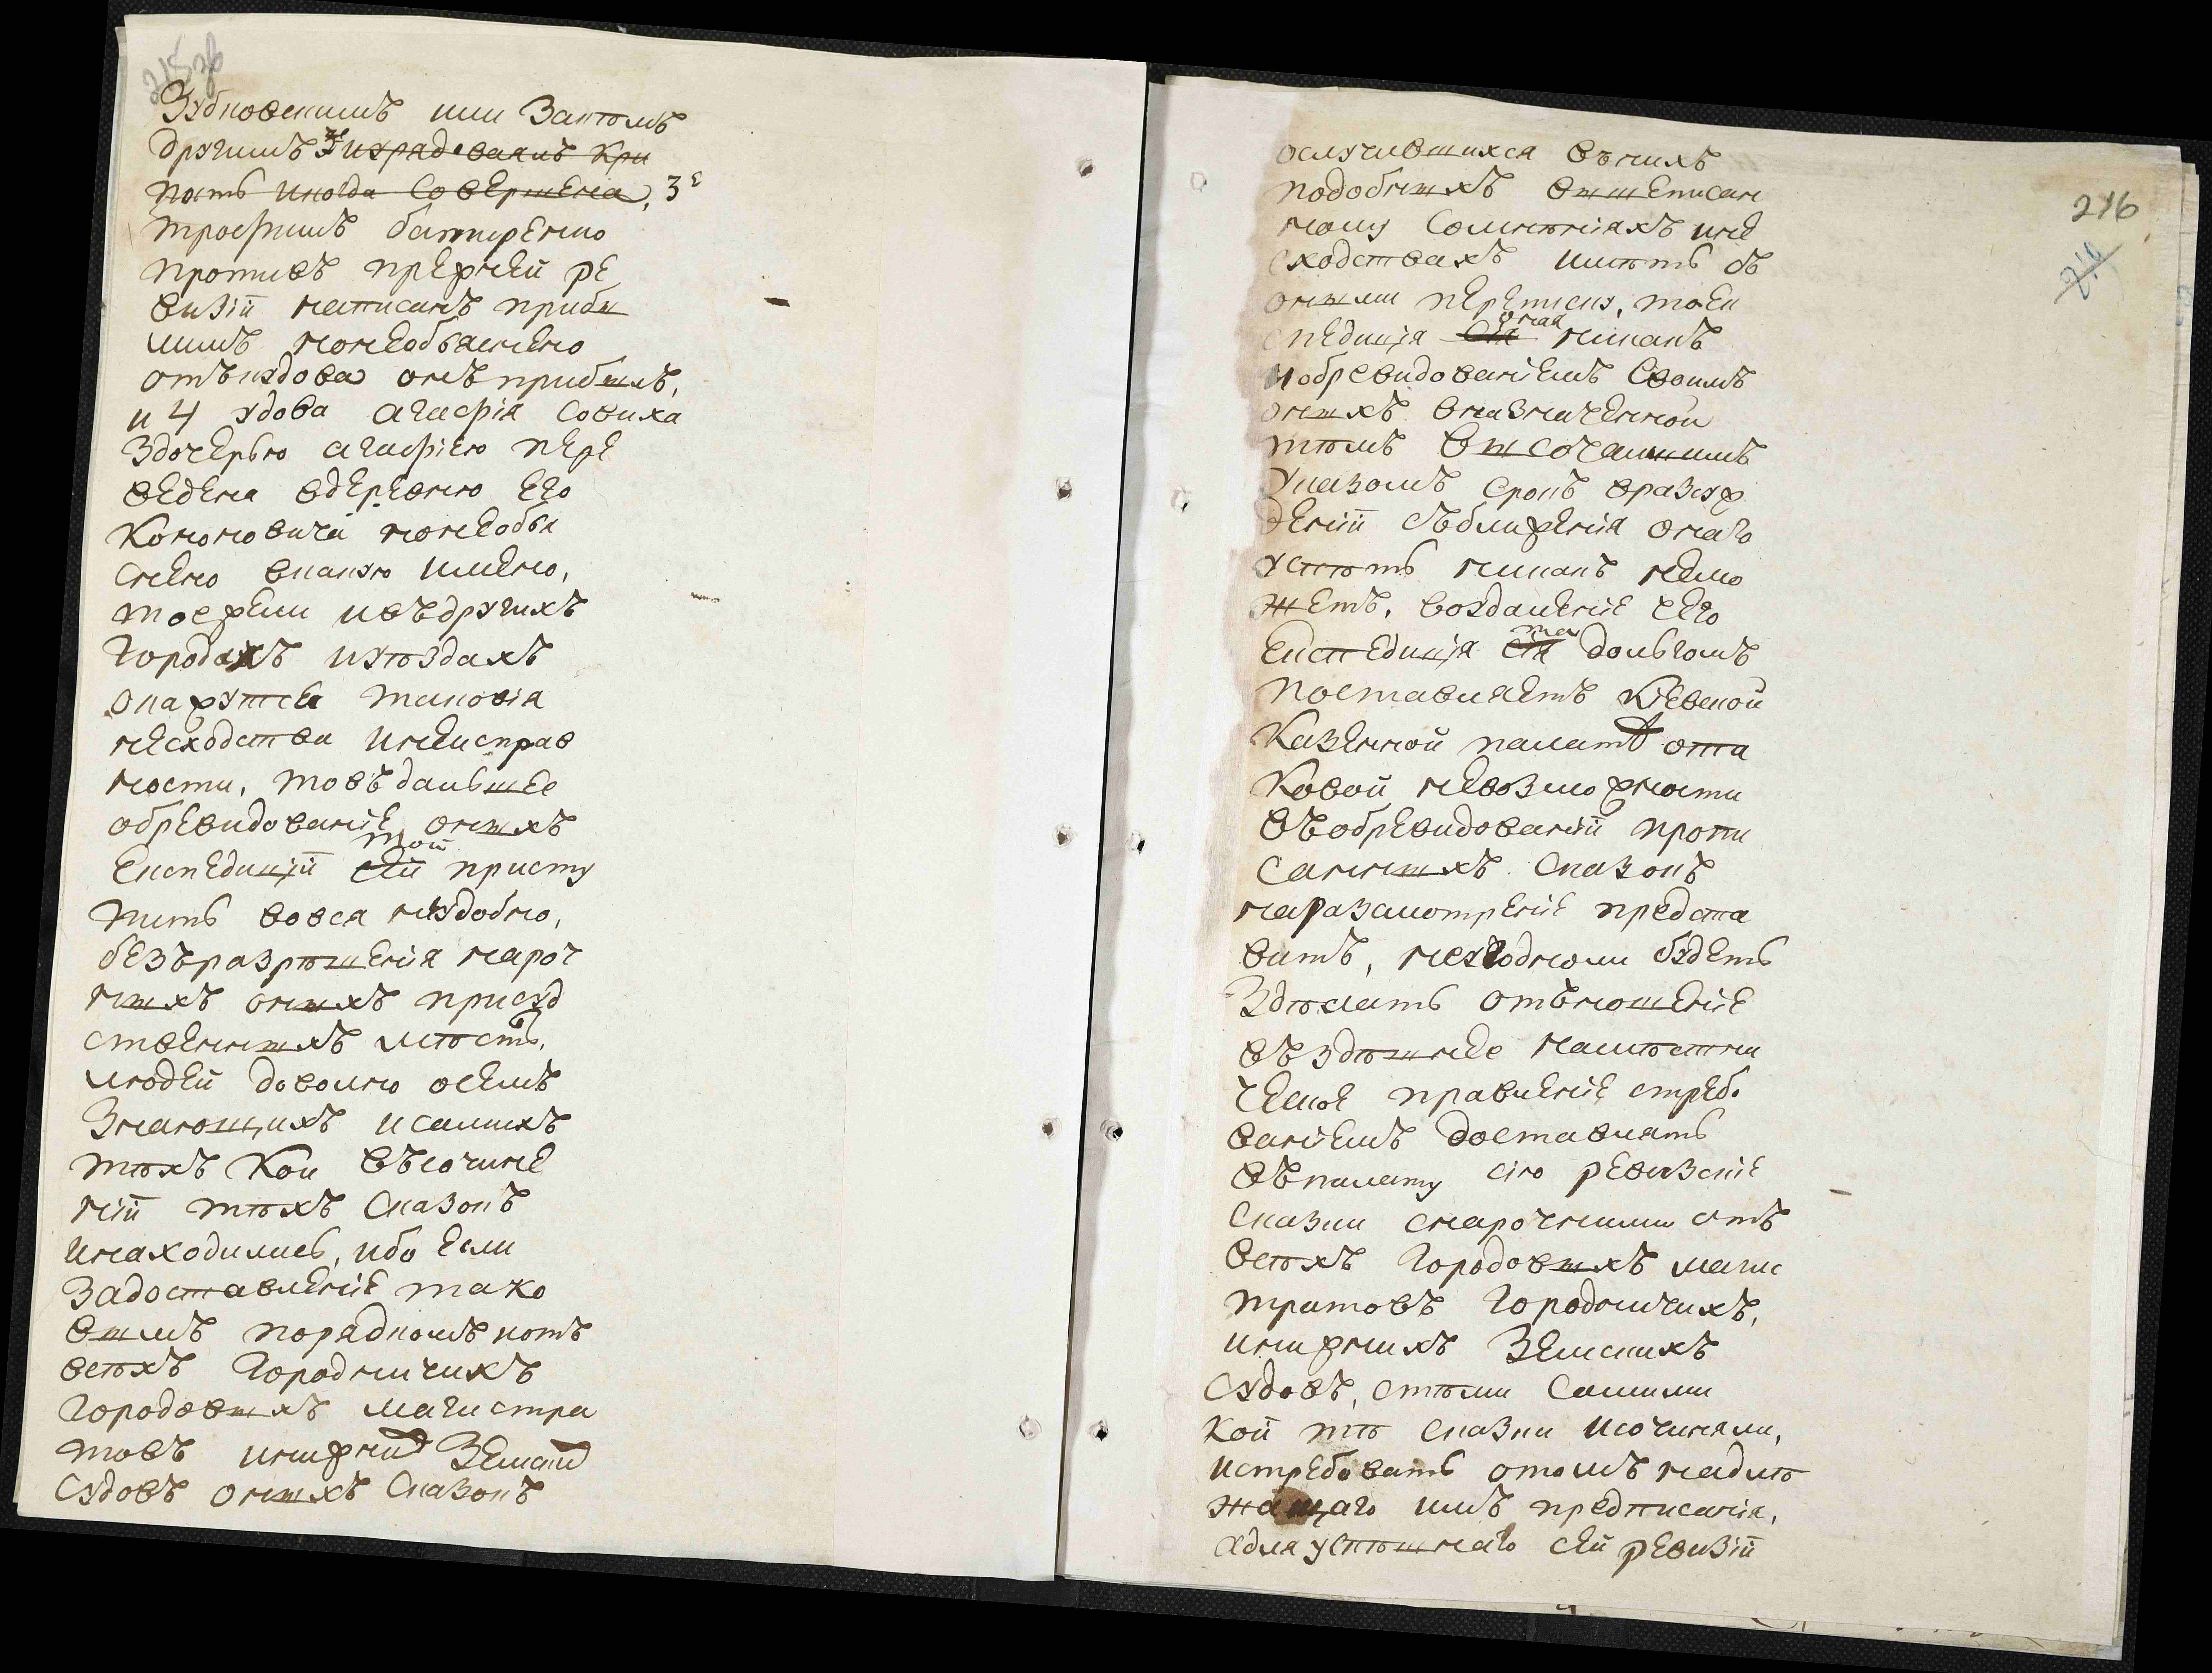 215 зв
Зубковскимъ или Закѣмъ
другимъ же израдованъ кри
пость иногда Совершена, 3е
трофимъ батиренко
противъ прежней ре
визіи написанъ прибы
лимъ нонеобъяснено
отъкудова онъ прибылъ,
и 4 удова агафія Совиха
Здочерью агафіею пере
ведена вдеревню его
Кононовичи нонеобъя
снено вкакую имено,
тоежели ивъдругихъ
Городахъ иуѣздахъ
окажутся таковія
несходства инеисправ
ности, товъдальшее
обревидованіе онихъ
Експедиціи той сей присту
пить вовся неудобно,
безъразрѣшенія нароч
нихъ онихъ присуд
ственнихъ мѣстъ,
людей доволно осемъ
Знающихъ исамихъ
тѣхъ Кои въсочине
ніи тѣхъ Сказокъ
инаходились, ибо если
Задоставленіе тако
вымъ порядкомъ нотъ
всѣхъ Городничихъ
Городовыхъ магистра
товъ инижнихъ Земскихъ
Судовъ онихъ Сказокъ
216
ослучившихся вънихъ
подобныхъ вышеписан
ному Сомнѣніяхъ ине
сходствахъ имѣть бъ
оными переписку, тоеи
спедиція сія оная никакъ
иобревидованіемъ Своимъ
онихъ вназначенной
тѣмъ Высочаишимъ
Указомъ срокъ вразсуж
деніи съближенія онаго
успѣть никакъ немо
жетъ, воздаленіе чего
експедиція сія та дольгомъ
поставляетъ Кіевской
Казенной палатѣ ота
Ковой невозможности
въобревидованіи пропи
саннихъ Сказокъ
наразсмотреніе предста
вить, неугодноли будетъ
Здѣлать отъношеніе
въздѣшнее намѣстни
ческое правленіе стребо
ваніемъ доставлять
въпалату сію ревизскіе
Сказки снарочними отъ
всѣхъ Городовыхъ магис
тратовъ Городничихъ,
инижнихъ Земскихъ
Судовъ, стѣми Самими
Кои тѣ Сказки исочиняли,
истребовать отомъ надлѣ
жащаго имъ предписанія,
адля успѣшнаго сей ревизіи